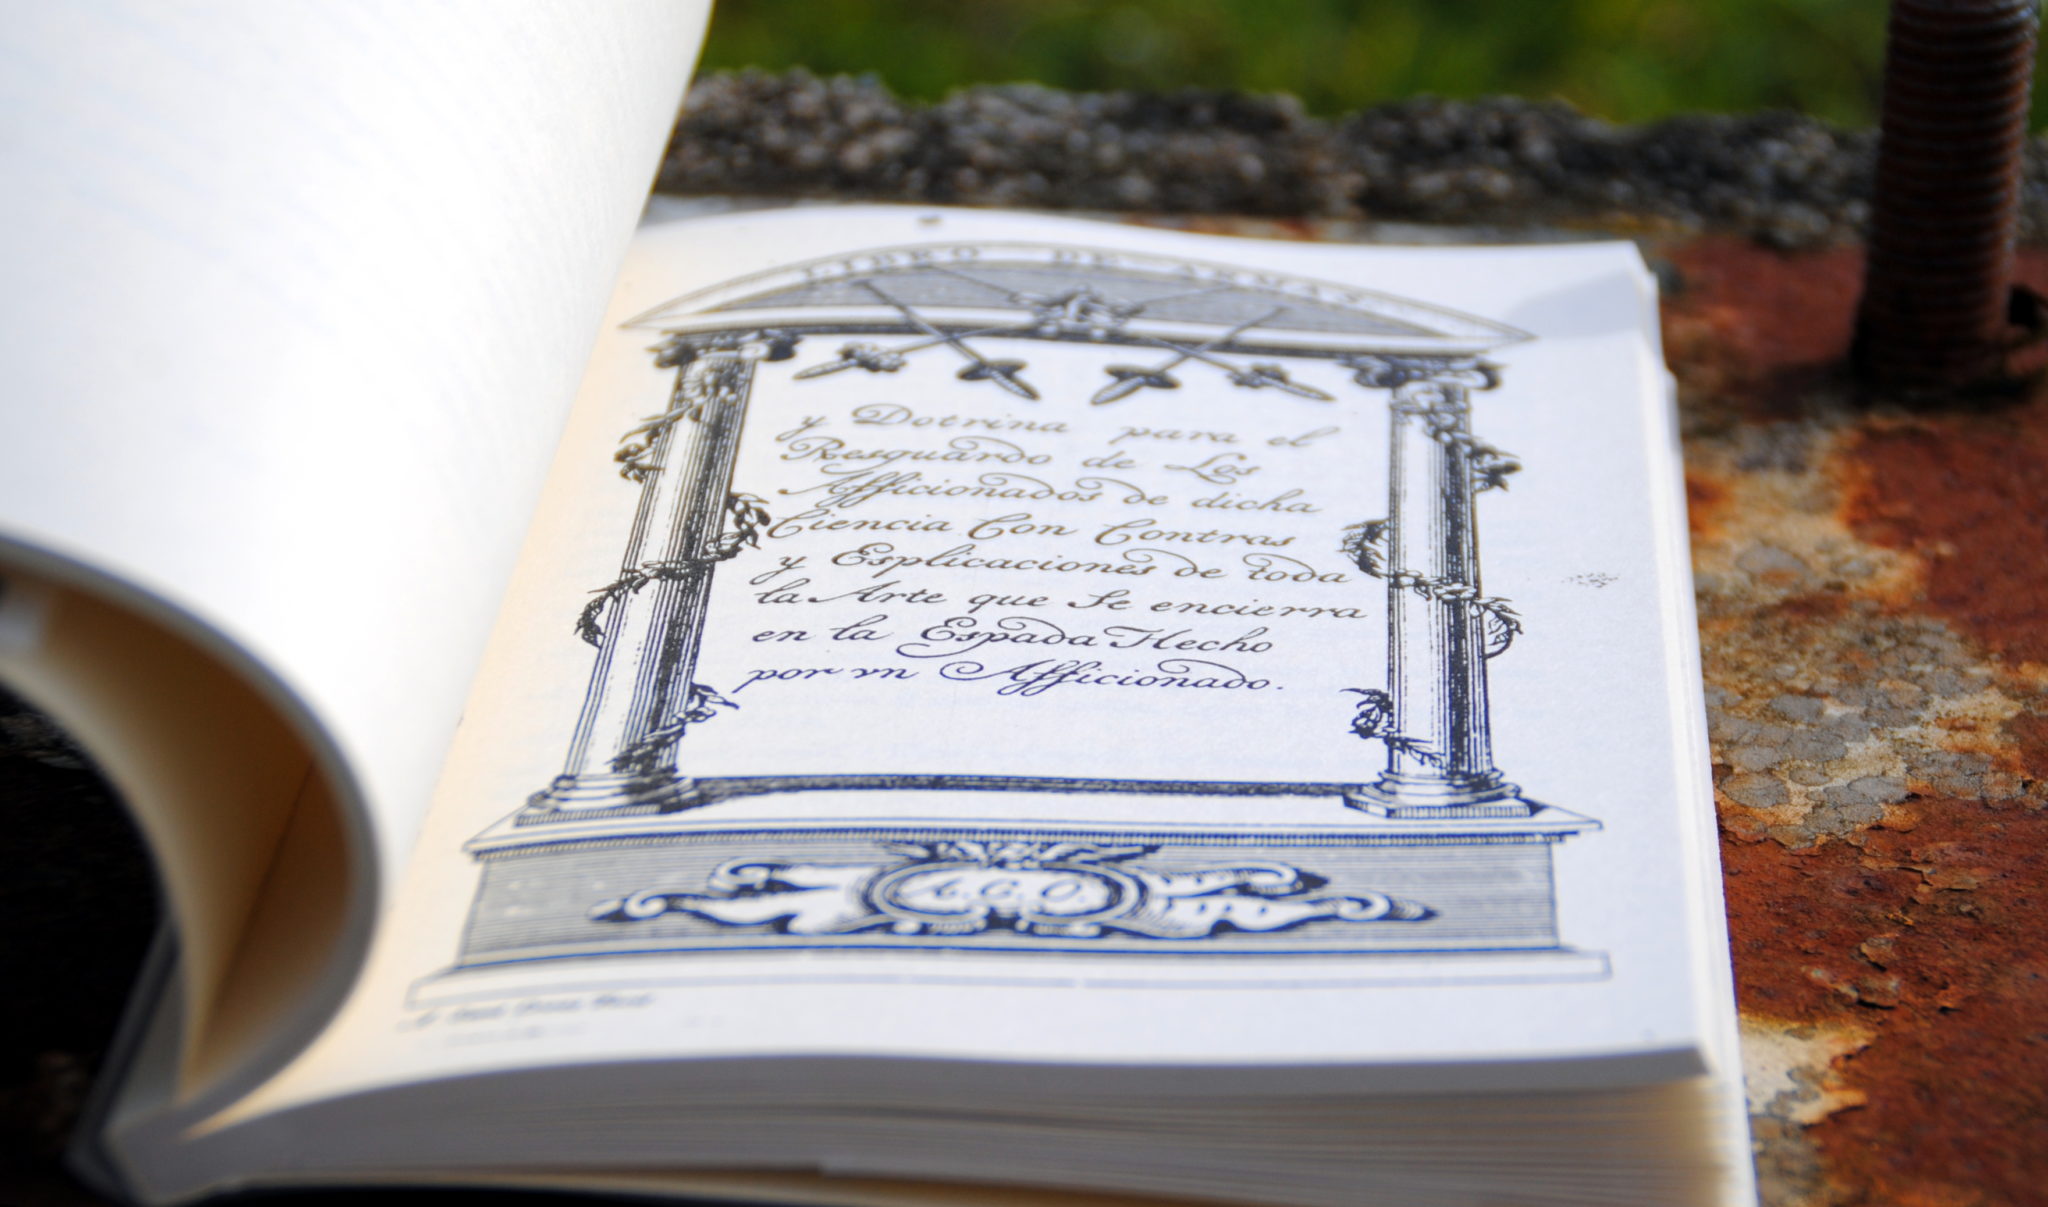 LIBRO DE ARMAS
y Dotrina para el
Resguardo de Los
Afficionados de dicha
Ciencia Con Contras
y Esplicaciones de toda
la Arte que Se encierra
en la Espada Hecho
por vn Afficionado.